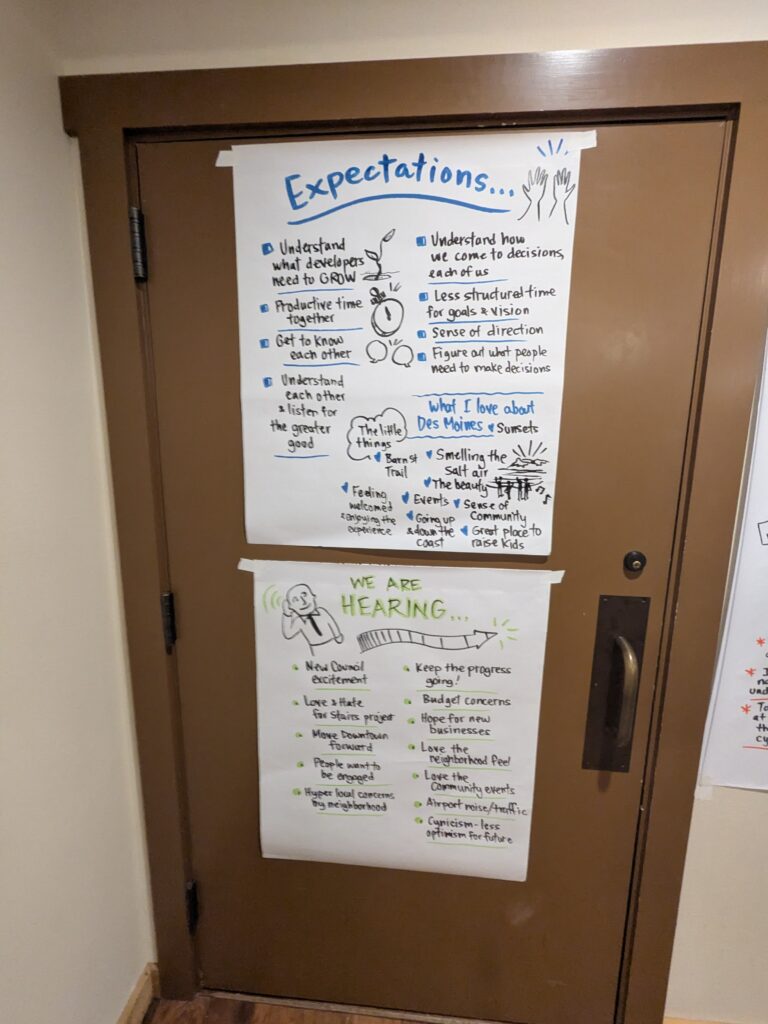 Expectations...
Understand
what developers
need to GROW
Productive time
together
Get to know
each other
Understand
each other
& listen for
the greater
good
Understand how
we come to decisions,
each of us
Less structured time
for goals & vision
Sense of direction
Figure out what people
need to make decisions
What I love about
Des Moines
Sunsets
The little
things
Barnst
Trail
Smelling the
Salt air
The beauty
Feeling
welcomed
& enjoying the
experience
Events
Going up
& down the
coast
Sense of
Community
Great place to
raise kids
WE ARE
HEARING...
New Council
excitement
Love & Hate
for Stairs project
Move Downtown
forward
People want to
be engaged
Hyper local concerns
by neighborhood
Keep the progress
going!
Budget concerns
Hope for new
businesses
Love the
neighborhood feel
Love the
Community events
Airport noise/traffic
Cynicism-less
optimism for future